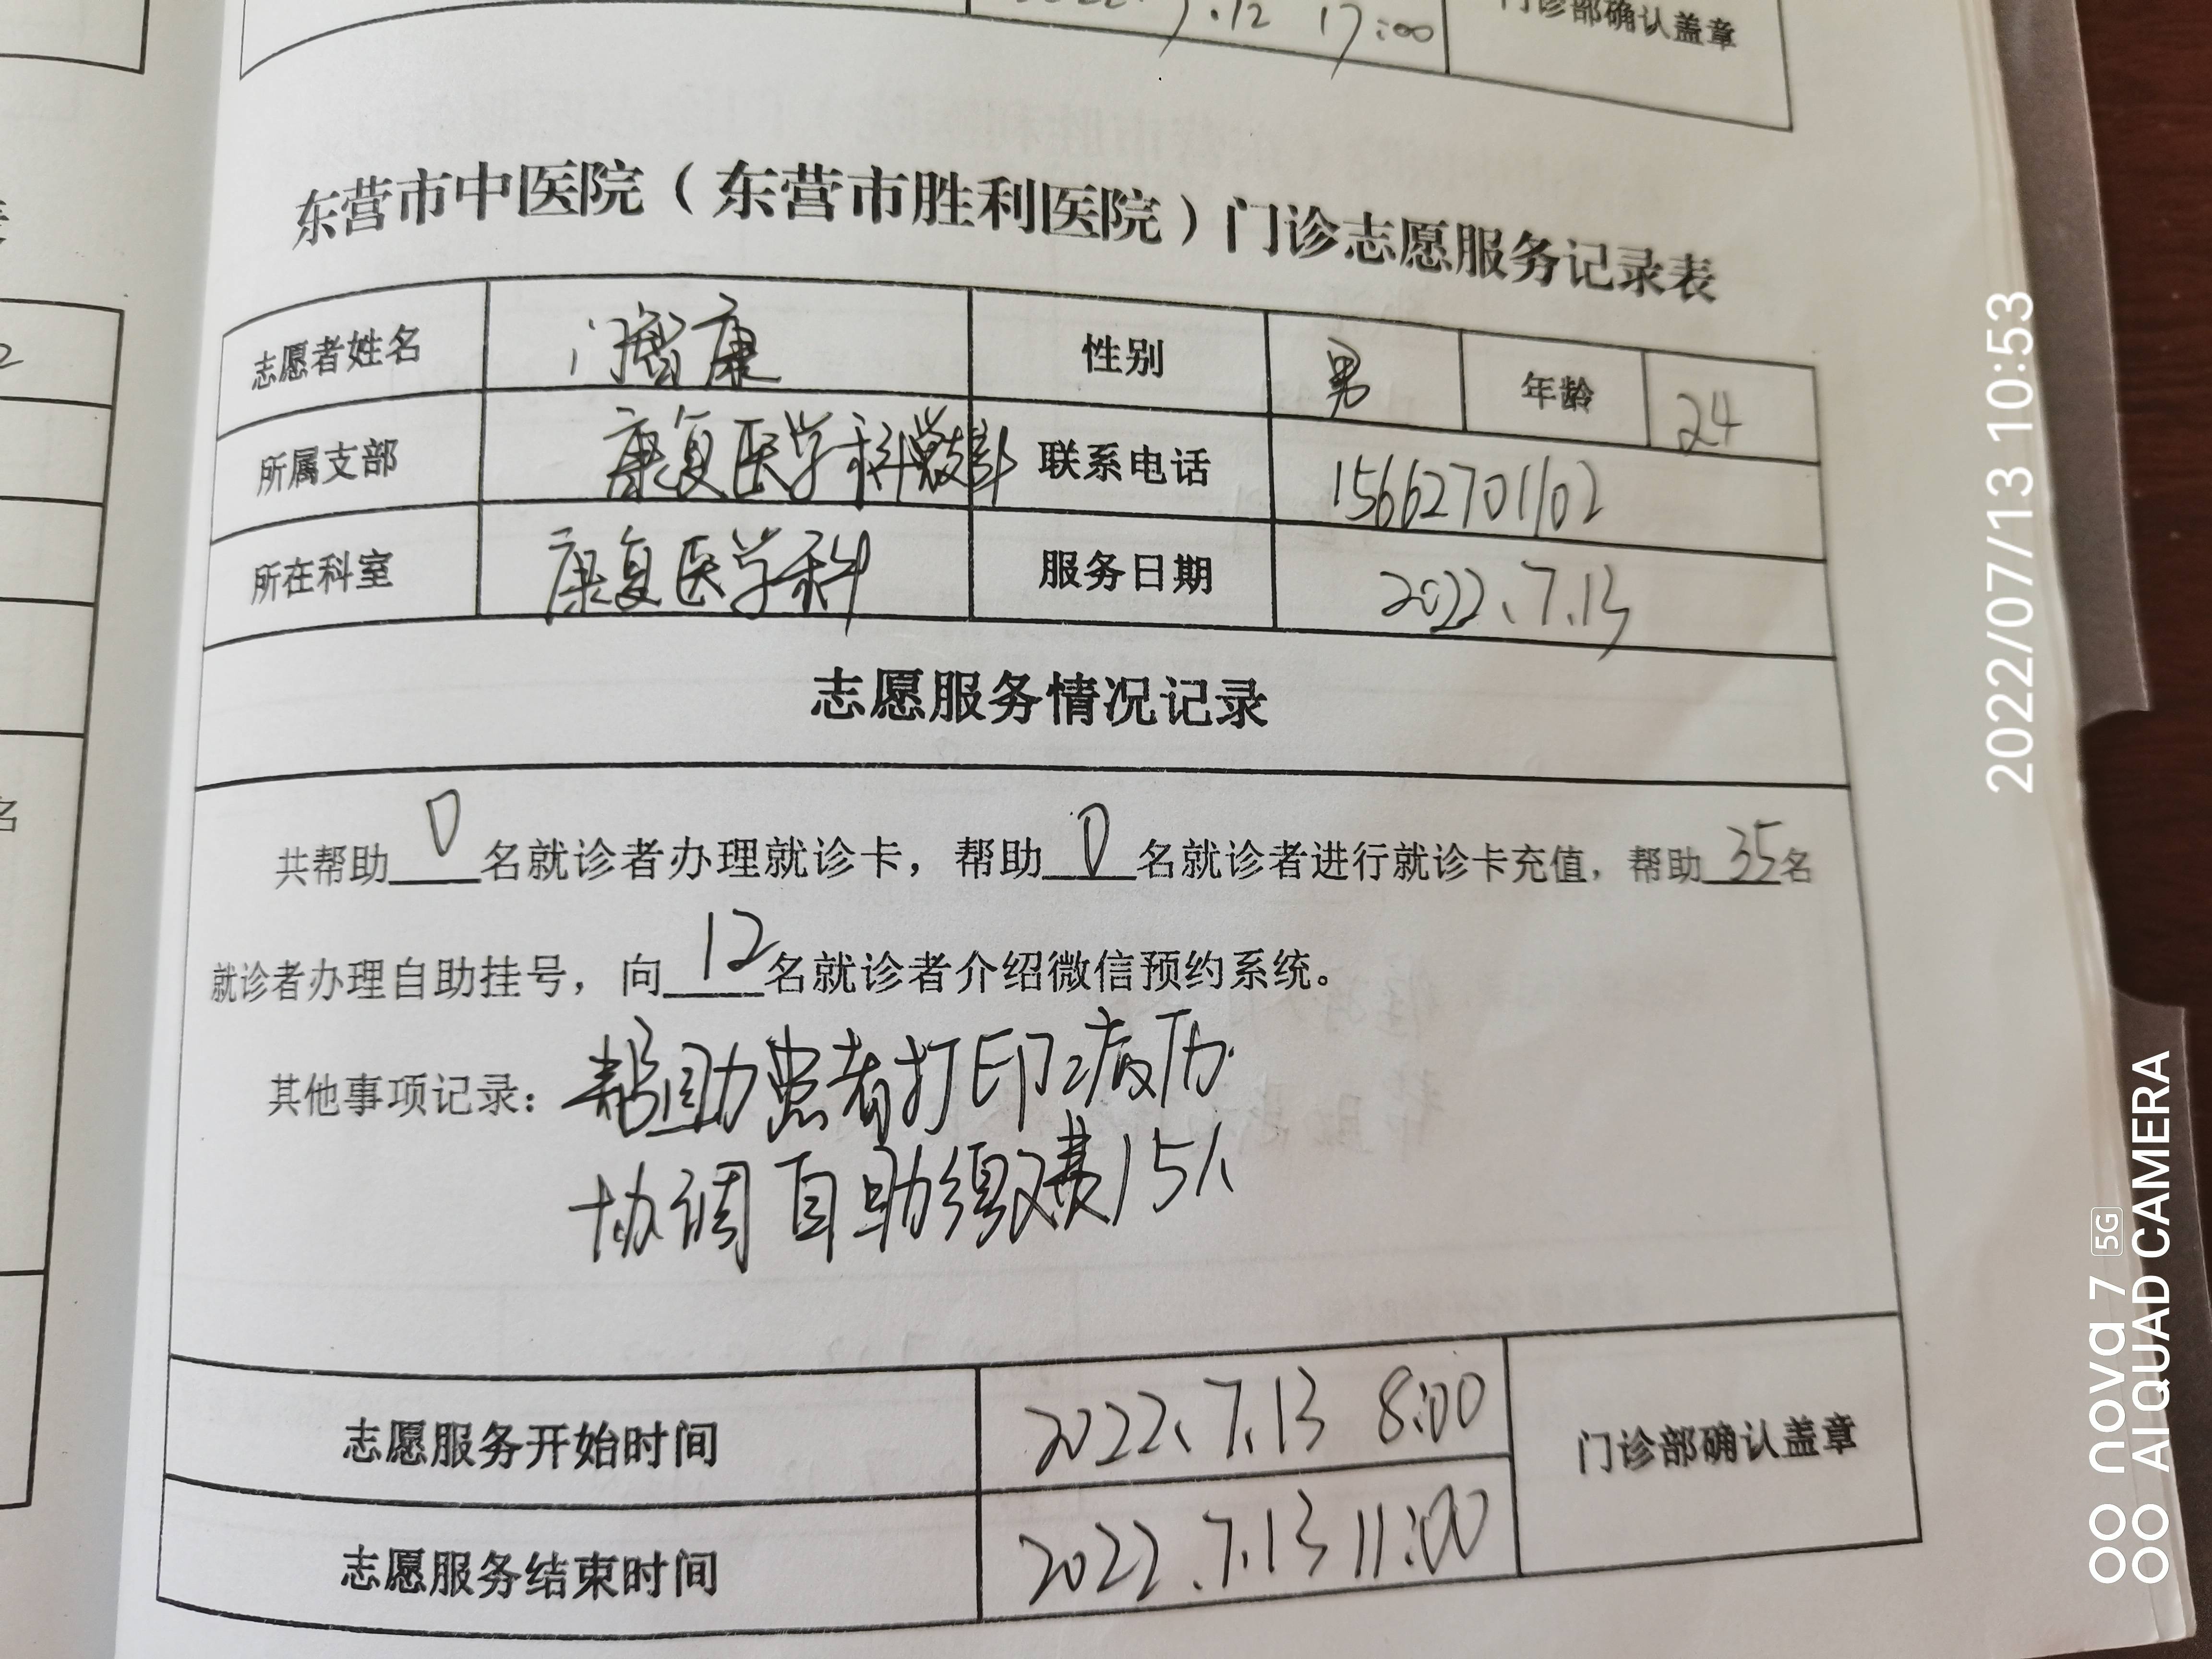 7.12 17:00
门诊部确认盖章
东营市中医院（东营市胜利医院）门诊志愿服务记录表
志愿者姓名 康 性别 男 年龄 24
所属支部 康复医学科党支部 联系电话 15662701102
所在科室 康复医学科 服务日期 2022.7.13
志愿服务情况记录
共帮助0名就诊者办理就诊卡，帮助0名就诊者进行就诊卡充值，帮助35名
就诊者办理自助挂号，向12名就诊者介绍微信预约系统。
其他事项记录：帮助患者打印病历
协调自助缴费15人
志愿服务开始时间 2022.7.13 8:00
门诊部确认盖章
志愿服务结束时间 2022.7.13 11:00
2022/07/13 10:53
nova 7 5G
AI QUAD CAMERA